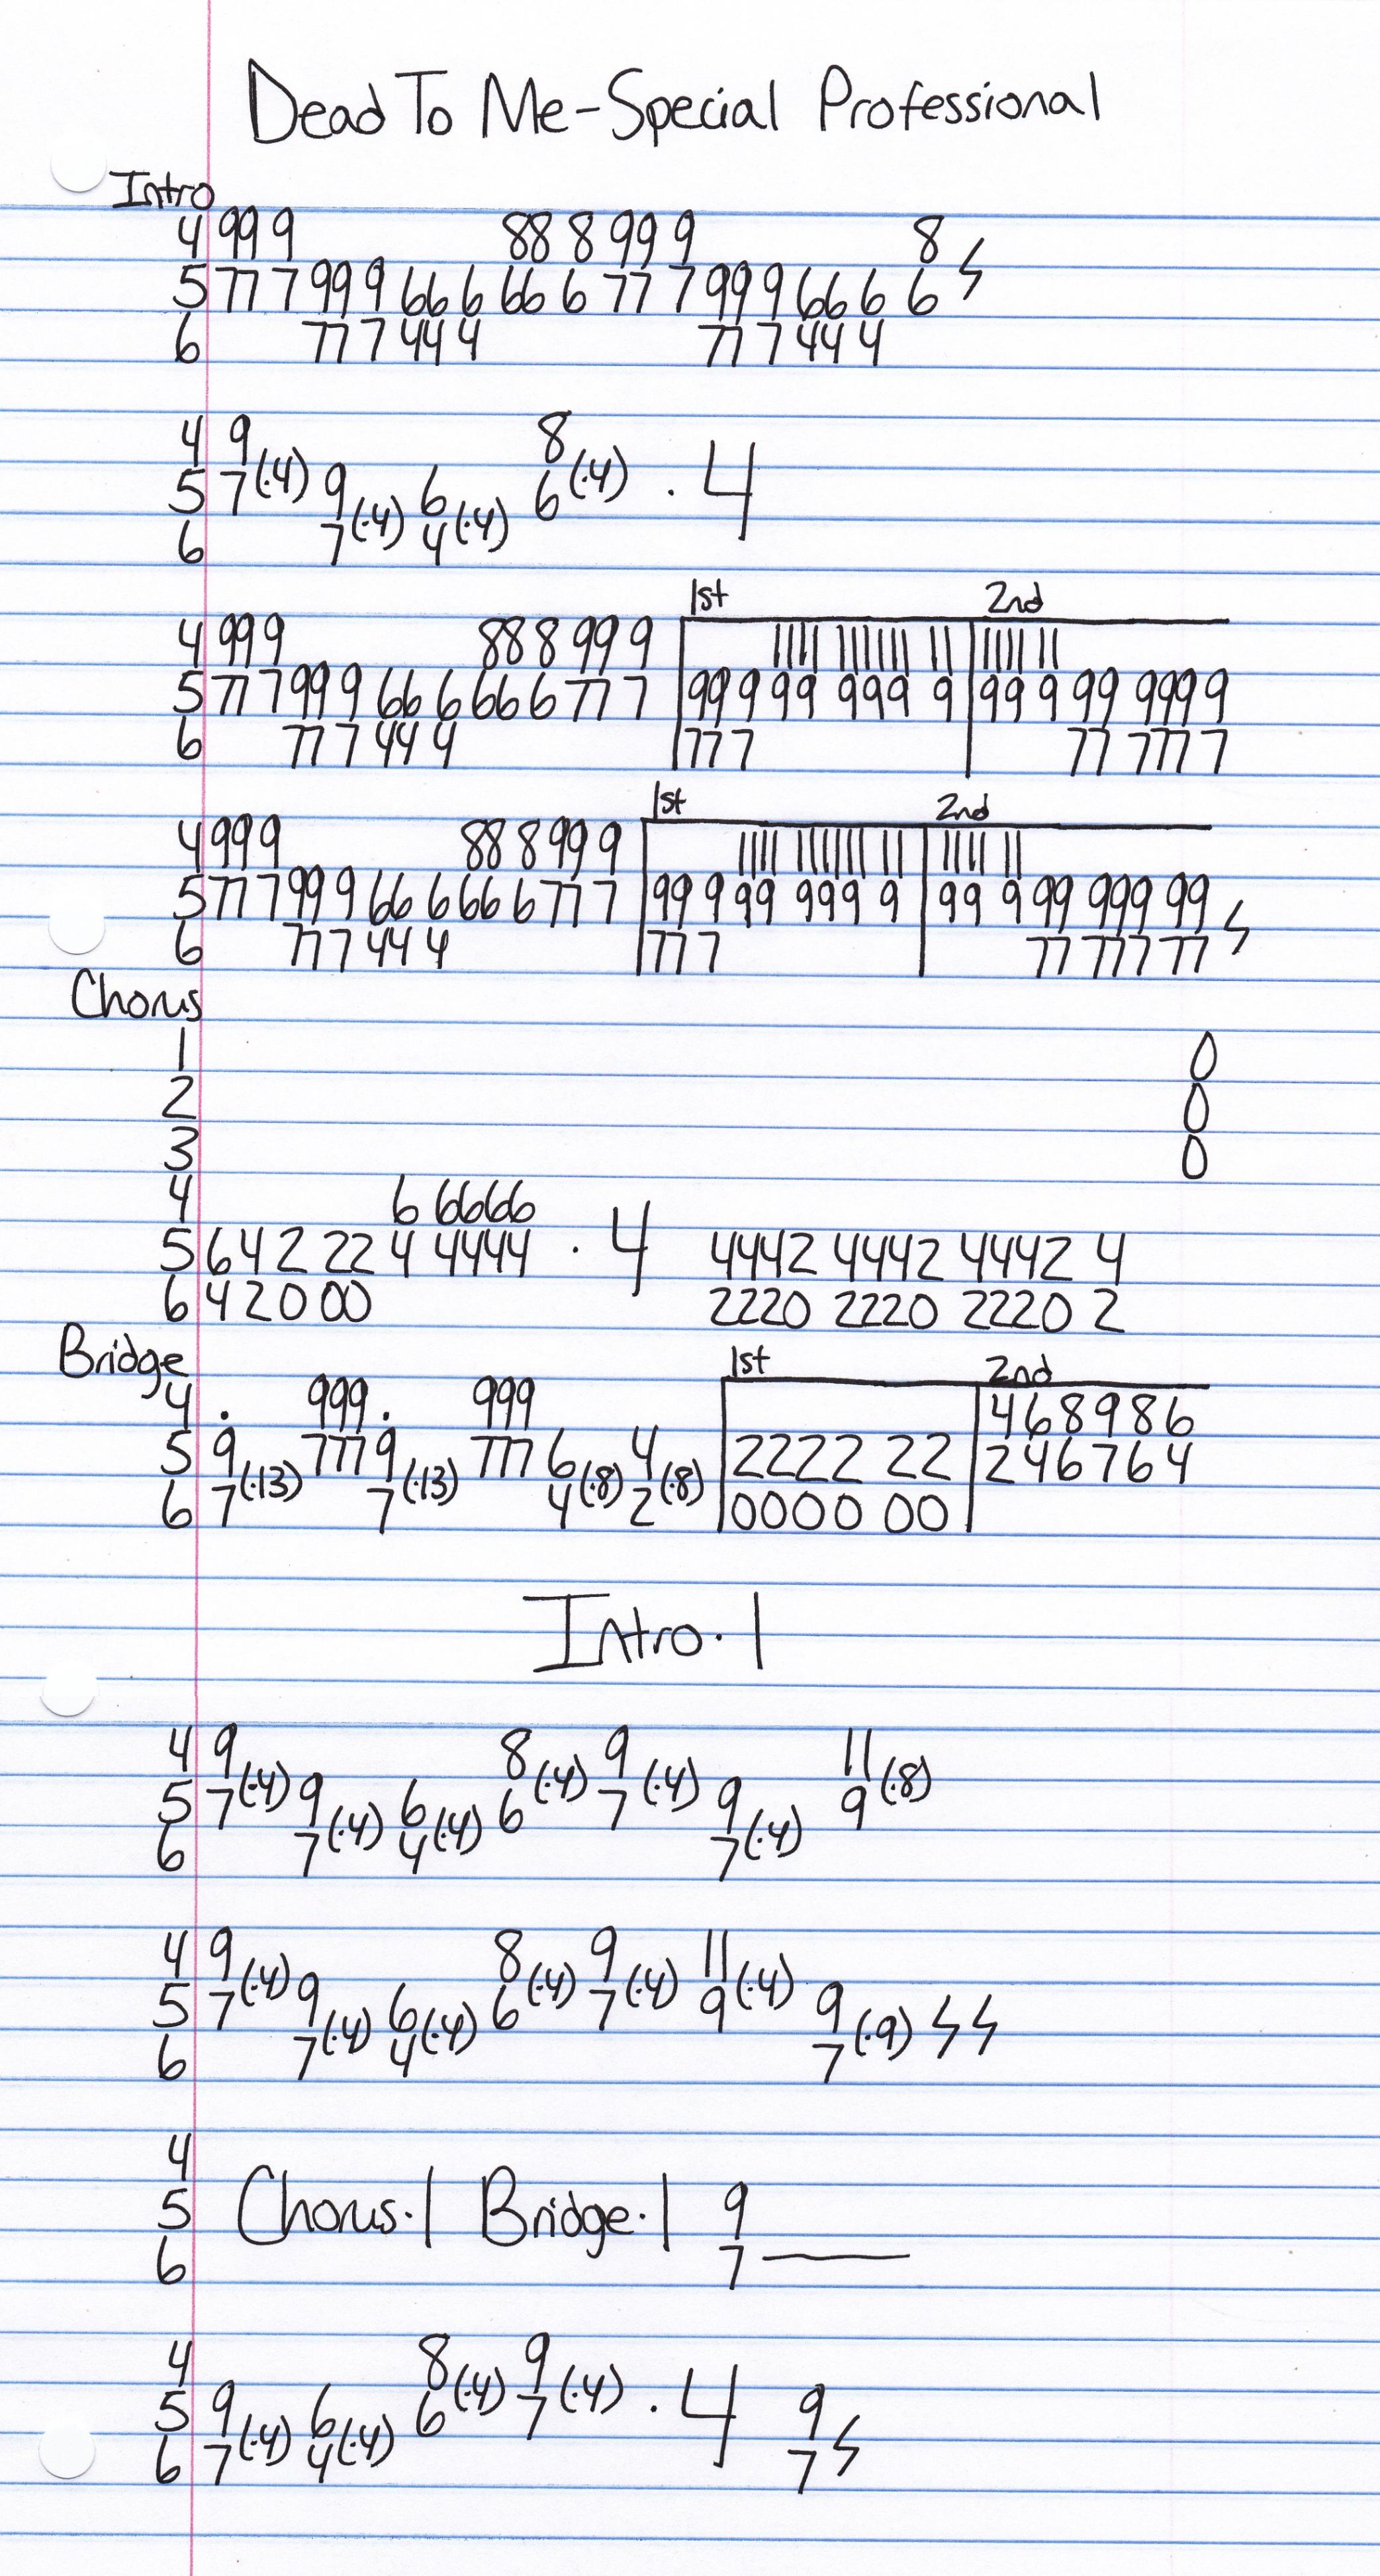 Dead To Me-Special Professional
Intro
4 99 9 88 8 99 9 8
5 77 7 99 9 66 6 66 6 77 7 99 9 66 6 6
6 77 7 44 4 77 7 44 4
4 9 8
5 7(·4) 9 6 6(·4) · 4
6 7(·4) 4(·4)
1st 2nd
4 999 88 8 99 9 |||| |||||| || ||||| ||
5 77 7 99 9 66 6 66 6 77 7 99 9 99 999 9 99 9 99 999 9
6 77 7 44 4 77 7 77 777 7
1st 2nd
4 999 88 8 99 9 |||| |||||| || |||| ||
5 77 7 99 9 66 6 66 6 77 7 99 9 99 999 9 99 9 99 999 99
6 77 7 44 4 77 7 77 777 77
Chorus
1 0
2 0
3 0
4 6 6666
5 6 4 2 22 4 4444 · 4 4442 4442 4442 4
6 4 2 0 00 2220 2220 2220 2
Bridge
1st 2nd
4 · 999 · 999 4 6 8 9 8 6
5 9 777 9 777 6 4 2222 22 2 4 6 7 6 4
6 7(·13) 7(·13) 4(·8) 2(·8) 0000 00
Intro·1
4 9 8 9 11
5 7(·4) 9 6 6(·4) 7(·4) 9 9(·8)
6 7(·4) 4(·4) 7(·4)
4 9 8 9 11
5 7(·4) 9 6 6(·4) 7(·4) 9(·4) 9
6 7(·4) 4(·4) 7(·9)
4
5 Chorus·1 Bridge·1 9
6 7
4 8 9
5 9 6 6(·4) 7(·4) · 4 9
6 7(·4) 4(·4) 7